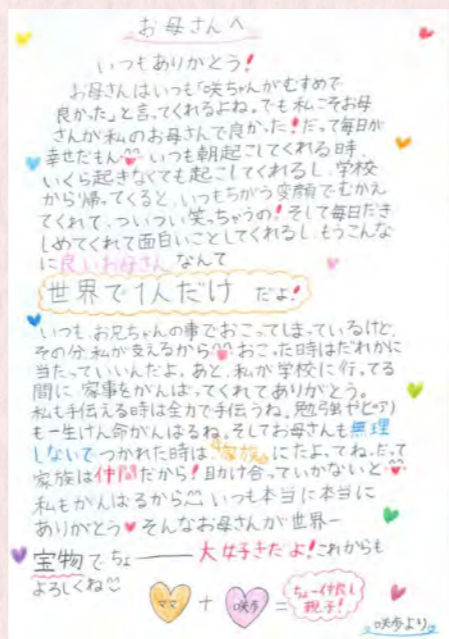 お母さんへ
いつもありがとう!
お母さんはいつも「咲ちゃんがむすめで
良かった」と言ってくれるよね。でも私こそお母
さんが私のお母さんで良かった!だって毎日が
幸せだもん いつも朝起こしてくれる時、
いくら起きなくても起こしてくれるし、学校
から帰ってくると、いつもちがう変顔でむかえ
てくれて、ついつい笑っちゃうの!そして毎日だき
しめてくれて面白いことしてくれるし、もうこんな
に良いお母さんなんて
世界で1人だけ だよ!
いつも、お兄ちゃんの事でおこってしまっているけど、
その分、私が支えるから おこった時はだれかに
当たっていいんだよ。あと、私が学校に行ってる
間に、家事をがんばってくれてありがとう。
私も手伝える時は全力で手伝うね。勉強やピアノ
も一生けん命がんばるね。そしてお母さんも無理
しないでつかれた時は、家族にたよってね。だって
家族は仲間だから!助け合っていかないと
私もがんばるから いつも本当に本当に
ありがとう♥そんなお母さんが世界一
宝物でちょ――大好きだよ!これからも
よろしくね
ママ + 咲歩 = ちょー仲良し
親子!
咲歩より